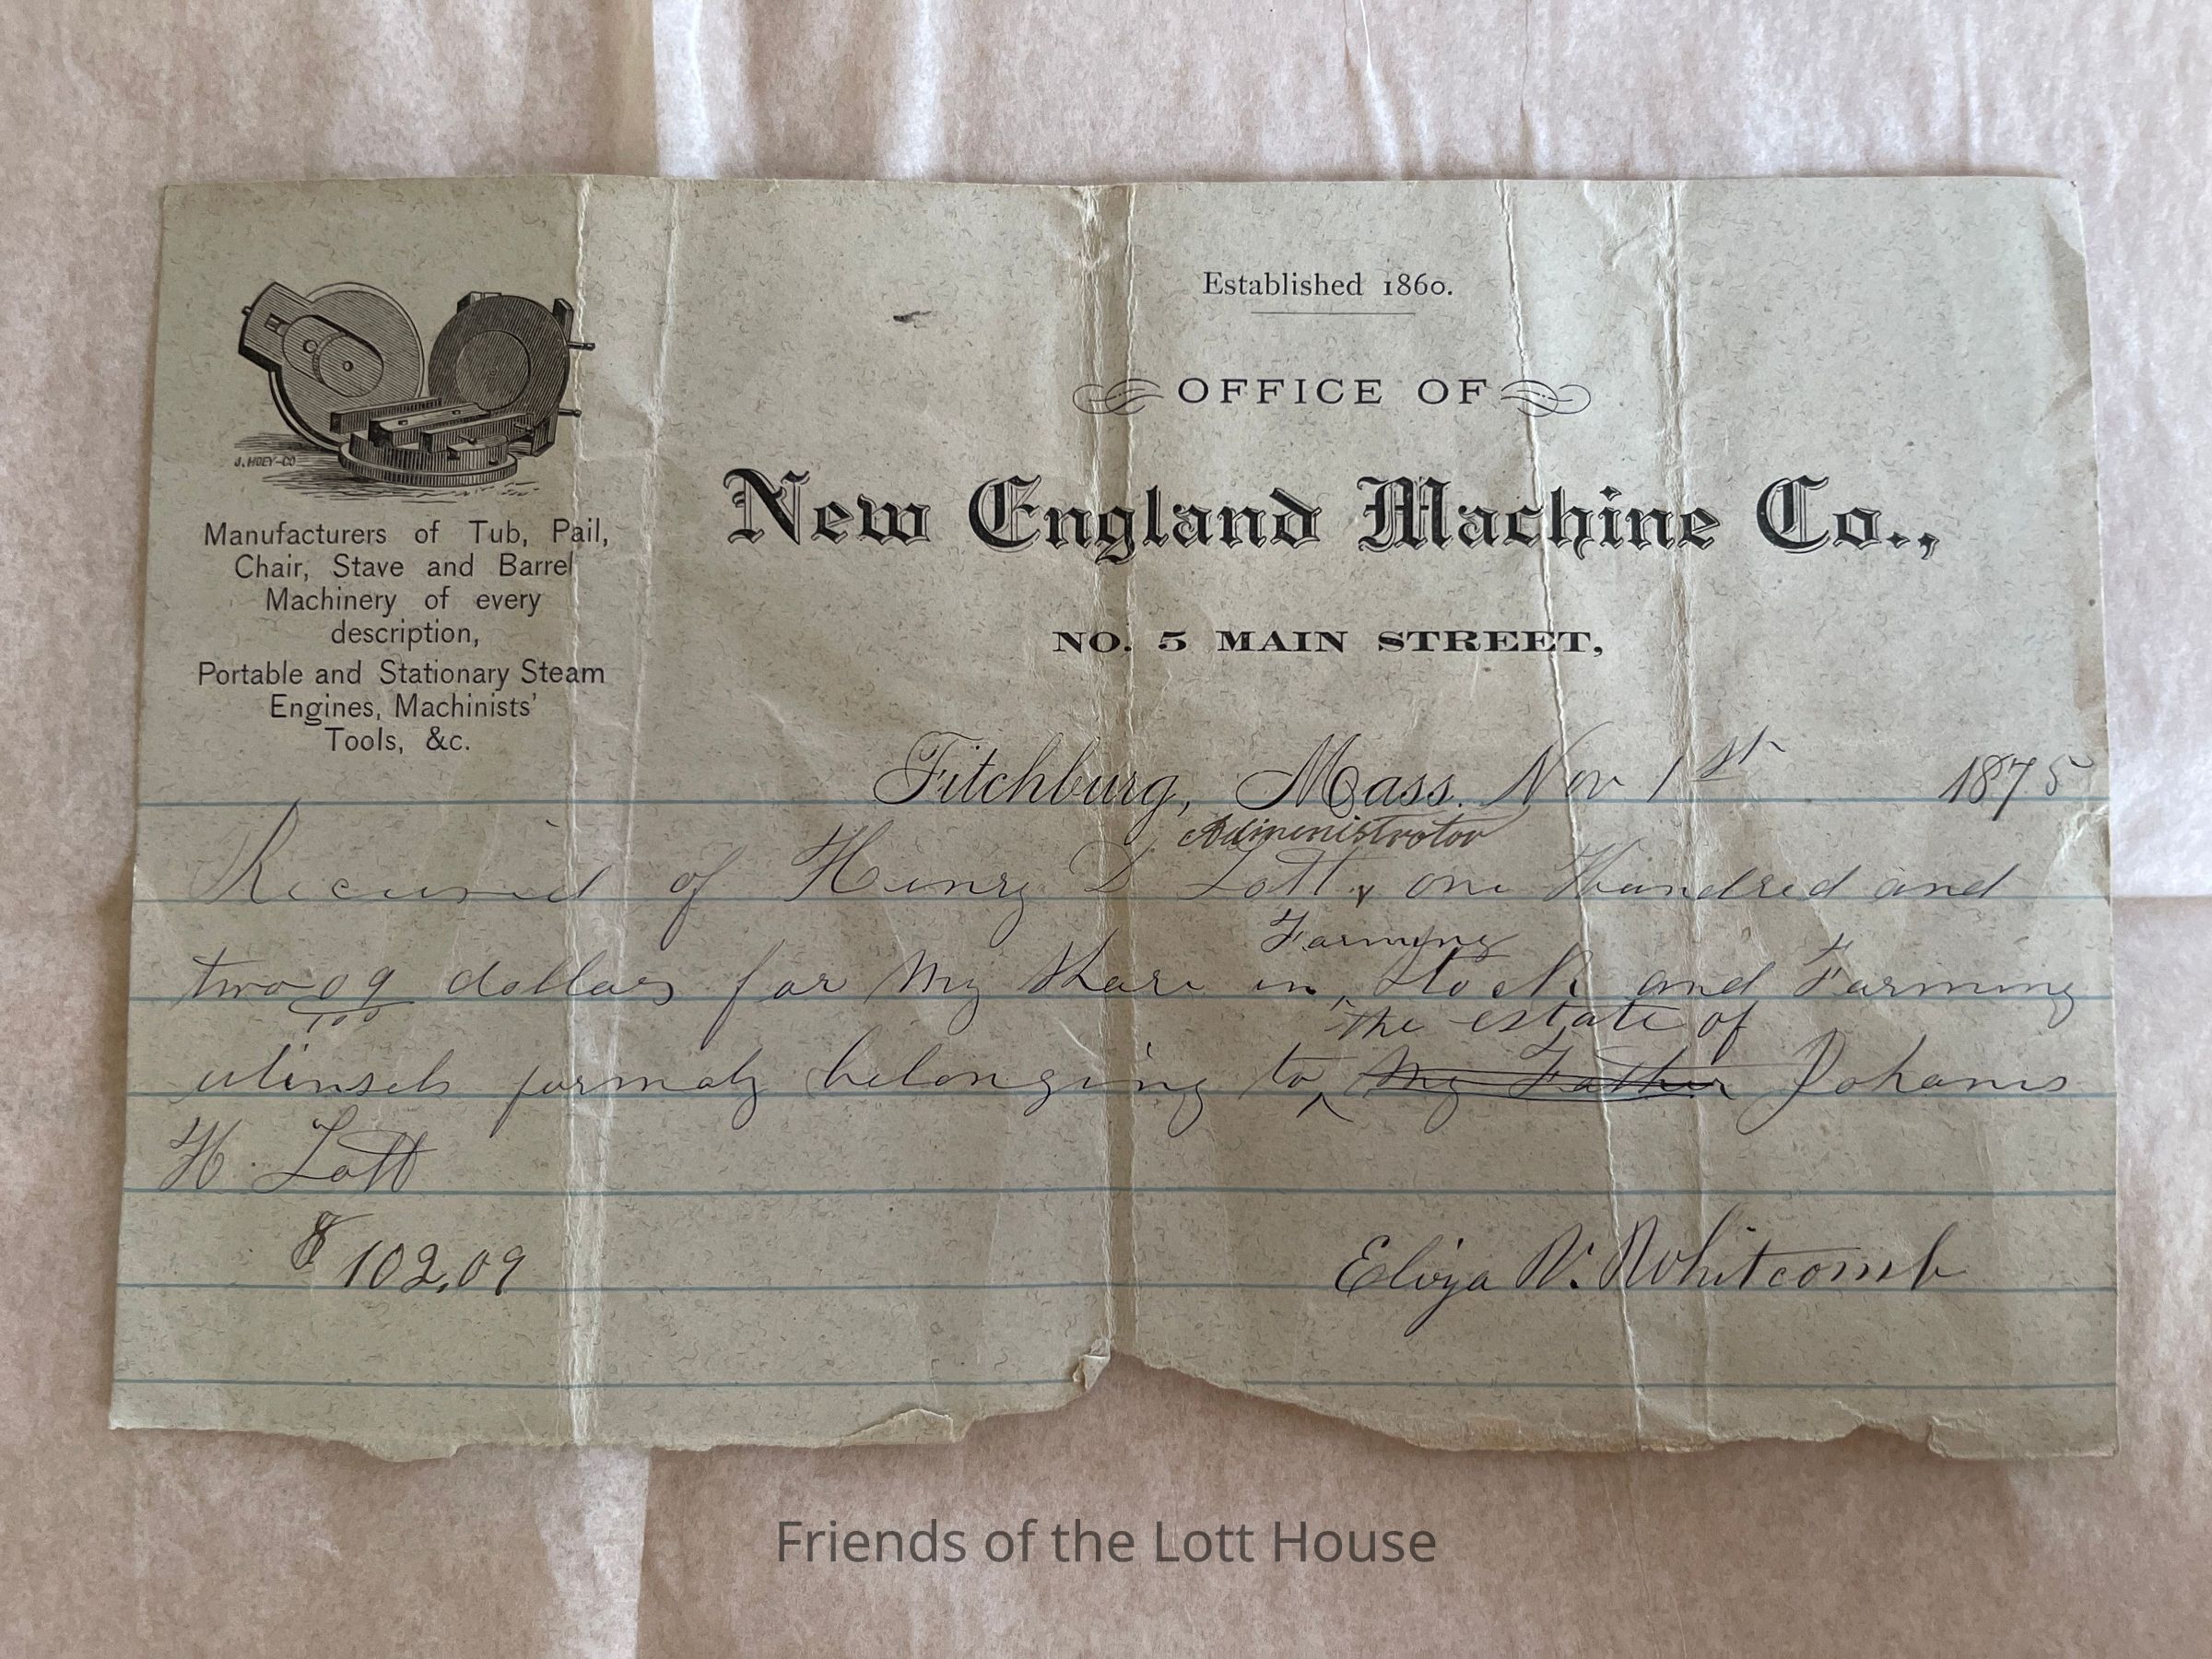 Established 1860.
OFFICE OF
New England Machine Co.,
NO. 5 MAIN STREET,
J. HOEY-CO
Manufacturers of Tub, Pail,
Chair, Stave and Barrel
Machinery of every
description,
Portable and Stationary Steam
Engines, Machinists'
Tools, &c.
Fitchburg, Mass. Nov 1st 1875
Administrator
Received of Henry D Lott one Hundred and
Farming
two 09/100 dollars for my share in Stock and Farming
the estate of
utinsels formaly belonging to my Father Johanis
H. Lott
$102,09
Eliza V. Whitcomb
Friends of the Lott House